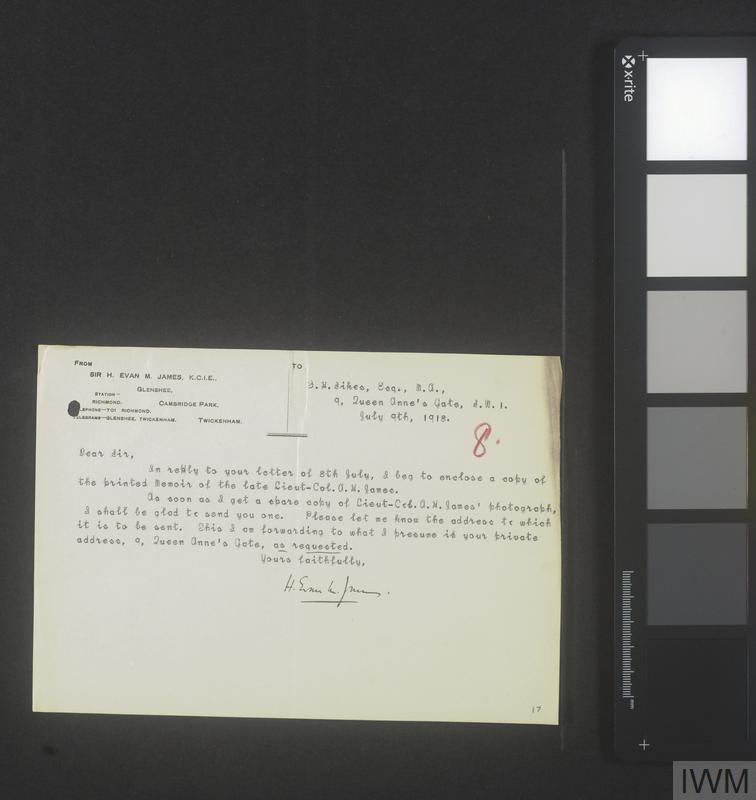 FROM
SIR H. EVAN M. JAMES, K.C.I.E.,
GLENSHEE,
STATION—
RICHMOND.
CAMBRIDGE PARK,
TELEPHONE—701 RICHMOND.
TELEGRAMS—GLENSHEE, TWICKENHAM.
TWICKENHAM.
TO
Esq., M.A.,
9, Queen Anne's Gate, S.W. 1.
July 9th, 1918.
8.
Dear Sir,
In reply to your letter of 8th July, I beg to enclose a copy of
the printed Memoir of the late Lieut-Col. A.H. James.
As soon as I get a spare copy of Lieut-Col. A.H. James' photograph,
I shall be glad to send you one. Please let me know the address to which
it is to be sent. This I am forwarding to what I presume is your private
address, 9, Queen Anne's Gate, as requested.
Yours faithfully,
H. Evan M. James.
17
x-rite
mm
IWM